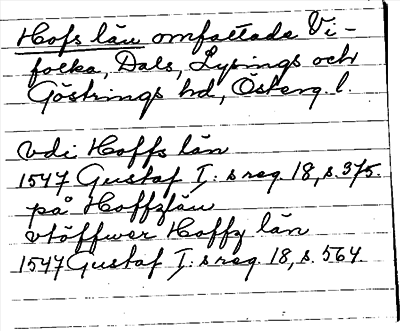 Hofs län omfattade Vi-
folka, Dals, Lysings och
Göstrings hd, Österg. l.
vdi Hoffs län
1547 Gustaf I: s reg. 18, s. 375.
på Hoffzlän
vtöffwer Hoffz län
1547 Gustaf I: s reg. 18, s. 564